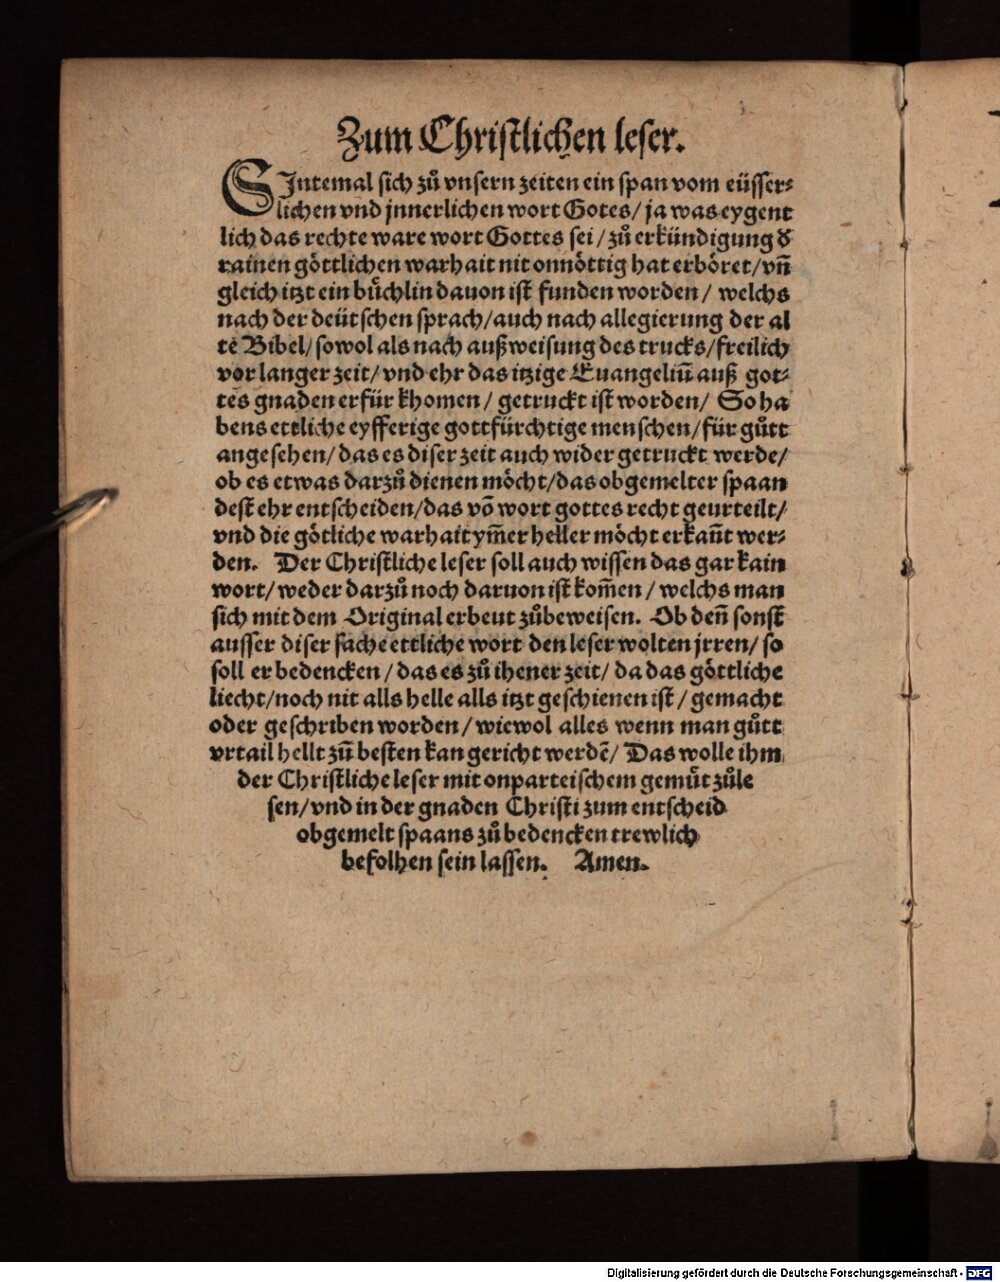 Zum Christlichen leser.
SIntemal sich zů vnsern zeiten ein span vom eüsser⸗
lichen vnd jnnerlichen wort Gotes/ ja was eygent
lich das rechte ware wort Gottes sei/ zů erkündigung d̕
rainen göttlichen warhait nit onnöttig hat erböret/ vn̄
gleich itzt ein bůchlin dauon ist funden worden/ welchs
nach der deütschen sprach/ auch nach allegierung der al
tē Bibel/ sowol als nach außweisung des trucks/ freilich
vor langer zeit/ vnd ehr das itzige Euangeliū auß got⸗
tes gnaden erfür khomen/ getruckt ist worden/ So ha
bens ettliche eyfferige gottfürchtige menschen/ für gůtt
angesehen/ das es diser zeit auch wider getruckt werde/
ob es etwas darzů dienen möcht/ das obgemelter spaan
dest ehr entscheiden/ das vō wort gottes recht geurteilt/
vnd die götliche warhait ym̄er heller möcht erkan̄t wer⸗
den. Der Christliche leser soll auch wissen das gar kain
wort/ weder darzů noch daruon ist kom̄en/ welchs man
sich mit dem Original erbeut zůbeweisen. Ob den̄ sonst
ausser diser sache ettliche wort den leser wolten jrren/ so
soll er bedencken/ das es zů ihener zeit/ da das göttliche
liecht/ noch nit alls helle alls itzt geschienen ist/ gemacht
oder geschriben worden/ wiewol alles wenn man gůtt
vrtail hellt zū besten kan gericht werdē/ Das wolle ihm
der Christliche leser mit onparteischem gemůt zůle
sen/ vnd in der gnaden Christi zum entscheid
obgemelt spaans zů bedencken trewlich
befolhen sein lassen. Amen.
Digitalisierung gefördert durch die Deutsche Forschungsgemeinschaft - DFG